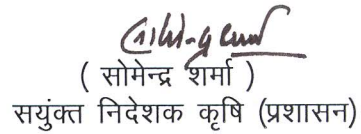 ( सोमेन्द्र शर्मा )
सयुंक्त निदेशक कृषि (प्रशासन)